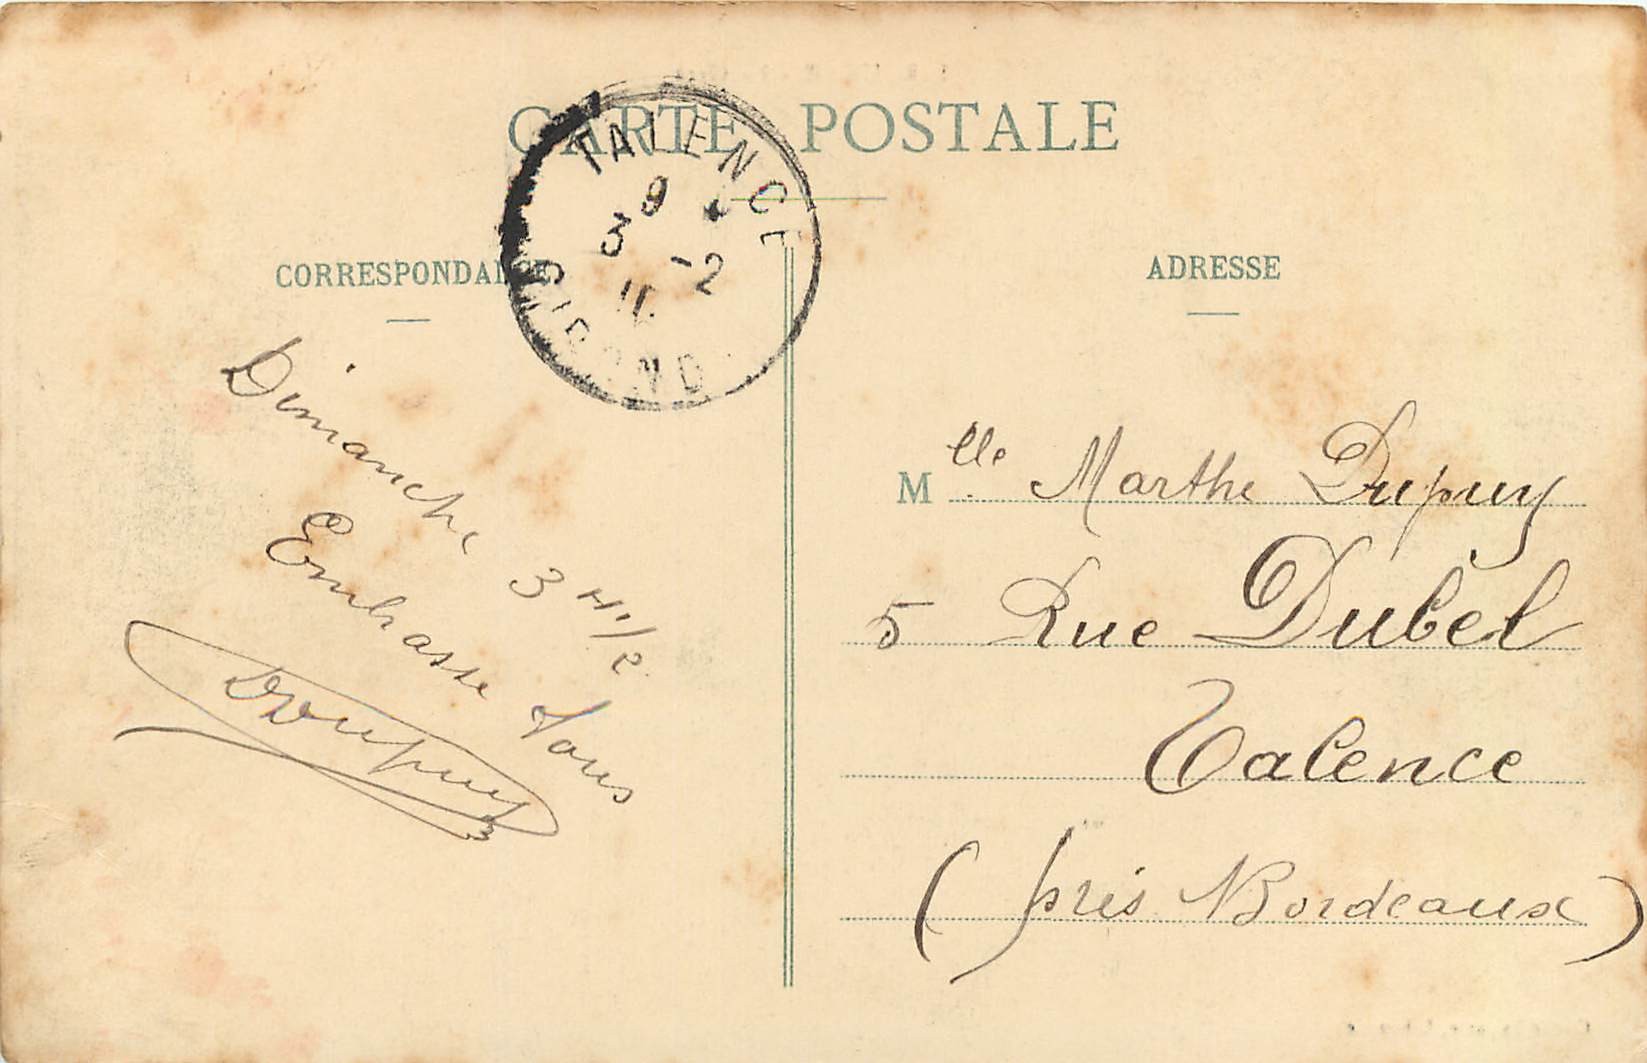 CARTE POSTALE
TALENCE
9
3 -2
11
GIROND
CORRESPONDANCE
ADRESSE
Dimanche 3 H 1/2
Embrasse Tous
Dupuy
Mlle Marthe Dupuy
5 Rue Dubel
Talence
(près Bordeaux)